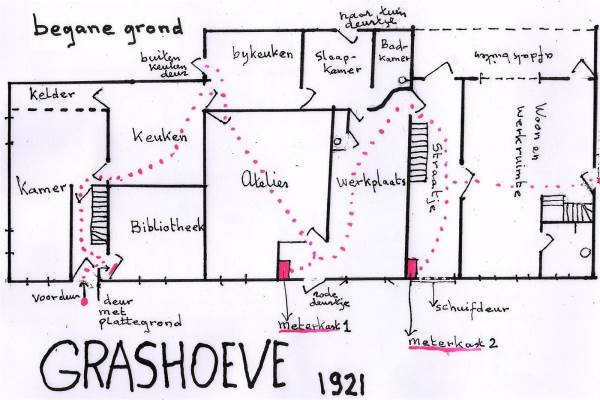 begane grond
naar tuin
deurtje
bykeuken
Slaap-
kamer
Bad-
kamer
afdak buiten
buiten
keuken
deur
kelder
Keuken
Kamer
Atelies
Werkplaats
Straatje
Woon en
werkruimte
Bibliotheek
voordeur
deur
met
plattegrond
rode
deurtje
schuifdeur
meterkast 1
meterkast 2
GRASHOEVE 1921